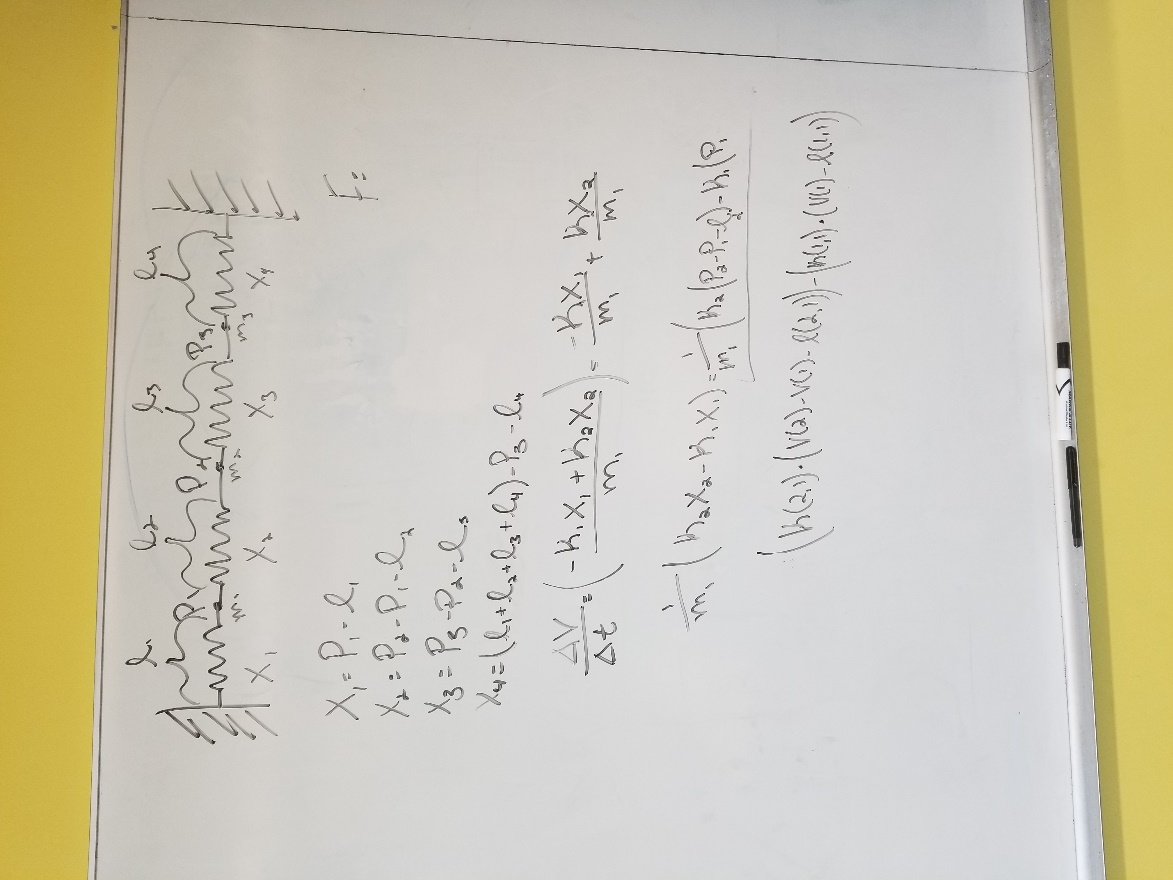 l₁ l₂ l₃ l₄
P₁ P₂ P₃
m₁ m₂ m₃
X₁ X₂ X₃ X₄
F:
X₁ = P₁ - l₁
X₂ = P₂ - P₁ - l₂
X₃ = P₃ - P₂ - l₃
X₄ = (l₁ + l₂ + l₃ + l₄) - P₃ - l₄
ΔV/Δt = (-k₁X₁ + k₂X₂ / m₁) = -k₁X₁/m₁ + k₂X₂/m₁
1/m₁ (k₂X₂ - k₁X₁) = 1/m₁ (k₂(P₂ - P₁ - l₂) - k₁(P₁
(k(2,1)·(V(2) - V(1) - l(2,1)) - (k(1,1)·(V(1) - l(1,1))